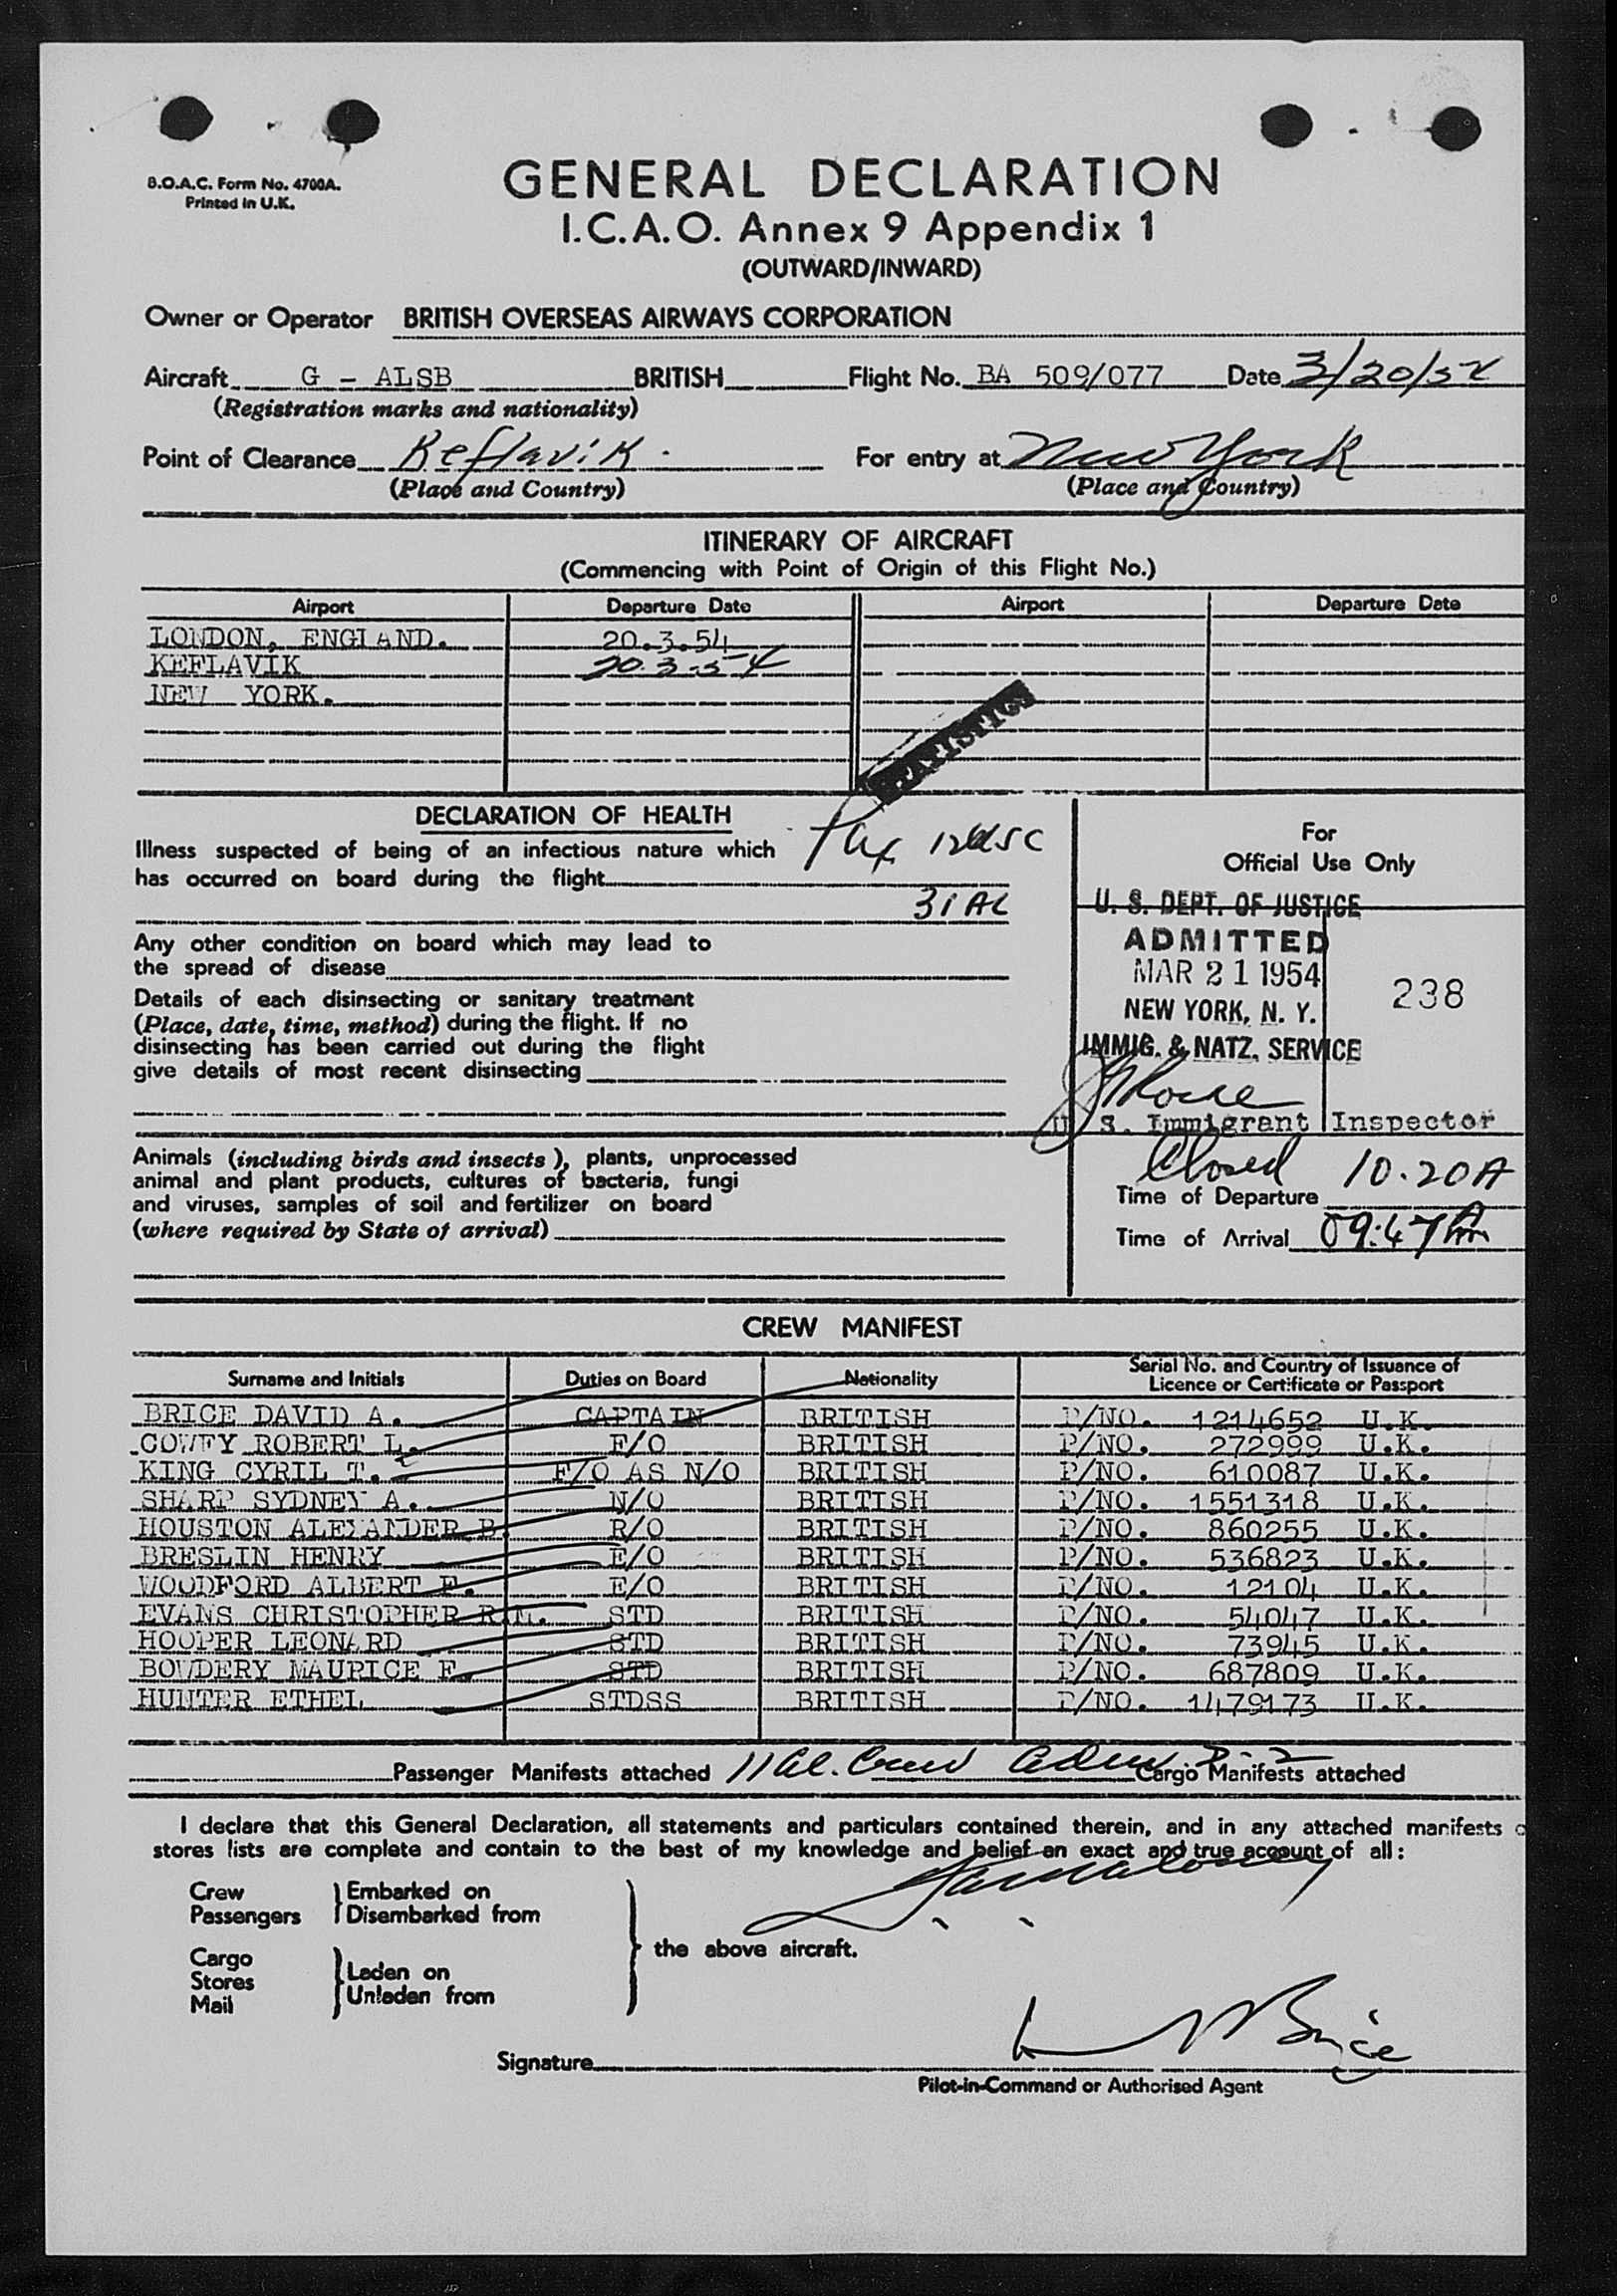 B.O.A.C. Form No. 4700A.
Printed in U.K.
GENERAL DECLARATION
I.C.A.O. Annex 9 Appendix 1
(OUTWARD/INWARD)
Owner or Operator BRITISH OVERSEAS AIRWAYS CORPORATION
Aircraft G - ALSB BRITISH Flight No. BA 509/077 Date 3/20/54
(Registration marks and nationality)
Point of Clearance Keflavik. For entry at New York
(Place and Country) (Place and Country)
ITINERARY OF AIRCRAFT
(Commencing with Point of Origin of this Flight No.)
Airport Departure Date Airport Departure Date
LONDON, ENGLAND. 20.3.54
KEFLAVIK 20.3.54
NEW YORK.
STATISTICS
DECLARATION OF HEALTH
Illness suspected of being of an infectious nature which
has occurred on board during the flight
31 AL
Any other condition on board which may lead to
the spread of disease
Details of each disinsecting or sanitary treatment
(Place, date, time, method) during the flight. If no
disinsecting has been carried out during the flight
give details of most recent disinsecting
For
Official Use Only
U. S. DEPT. OF JUSTICE
ADMITTED
MAR 21 1954
238
NEW YORK, N. Y.
IMMIG. & NATZ. SERVICE
U. S. Immigrant Inspector
Animals (including birds and insects), plants, unprocessed
animal and plant products, cultures of bacteria, fungi
and viruses, samples of soil and fertilizer on board
(where required by State of arrival)
Closed 10.20A
Time of Departure
Time of Arrival 09:47 Am
CREW MANIFEST
Surname and Initials Duties on Board Nationality Serial No. and Country of Issuance of
Licence or Certificate or Passport
BRICE DAVID A. CAPTAIN BRITISH P/NO. 1214652 U.K.
COWEY ROBERT L. F/O BRITISH P/NO. 272999 U.K.
KING CYRIL T. F/O AS N/O BRITISH P/NO. 610087 U.K.
SHARP SYDNEY A. N/O BRITISH P/NO. 1551318 U.K.
HOUSTON ALEXANDER B. R/O BRITISH P/NO. 860255 U.K.
BRESLIN HENRY E/O BRITISH P/NO. 536823 U.K.
WOODFORD ALBERT F. E/O BRITISH P/NO. 12104 U.K.
EVANS CHRISTOPHER R.M. STD BRITISH P/NO. 54047 U.K.
HOOPER LEONARD STD BRITISH P/NO. 73945 U.K.
BOWDERY MAURICE F. STD BRITISH P/NO. 687809 U.K.
HUNTER ETHEL STDSS BRITISH P/NO. 1479173 U.K.
Passenger Manifests attached 11 Al. Crew Adm. D-2 Cargo Manifests attached
I declare that this General Declaration, all statements and particulars contained therein, and in any attached manifests
stores lists are complete and contain to the best of my knowledge and belief an exact and true account of all:
Crew
Passengers
Embarked on
Disembarked from
Cargo
Stores
Mail
Laden on
Unladen from
the above aircraft.
Signature Brice
Pilot-in-Command or Authorised Agent